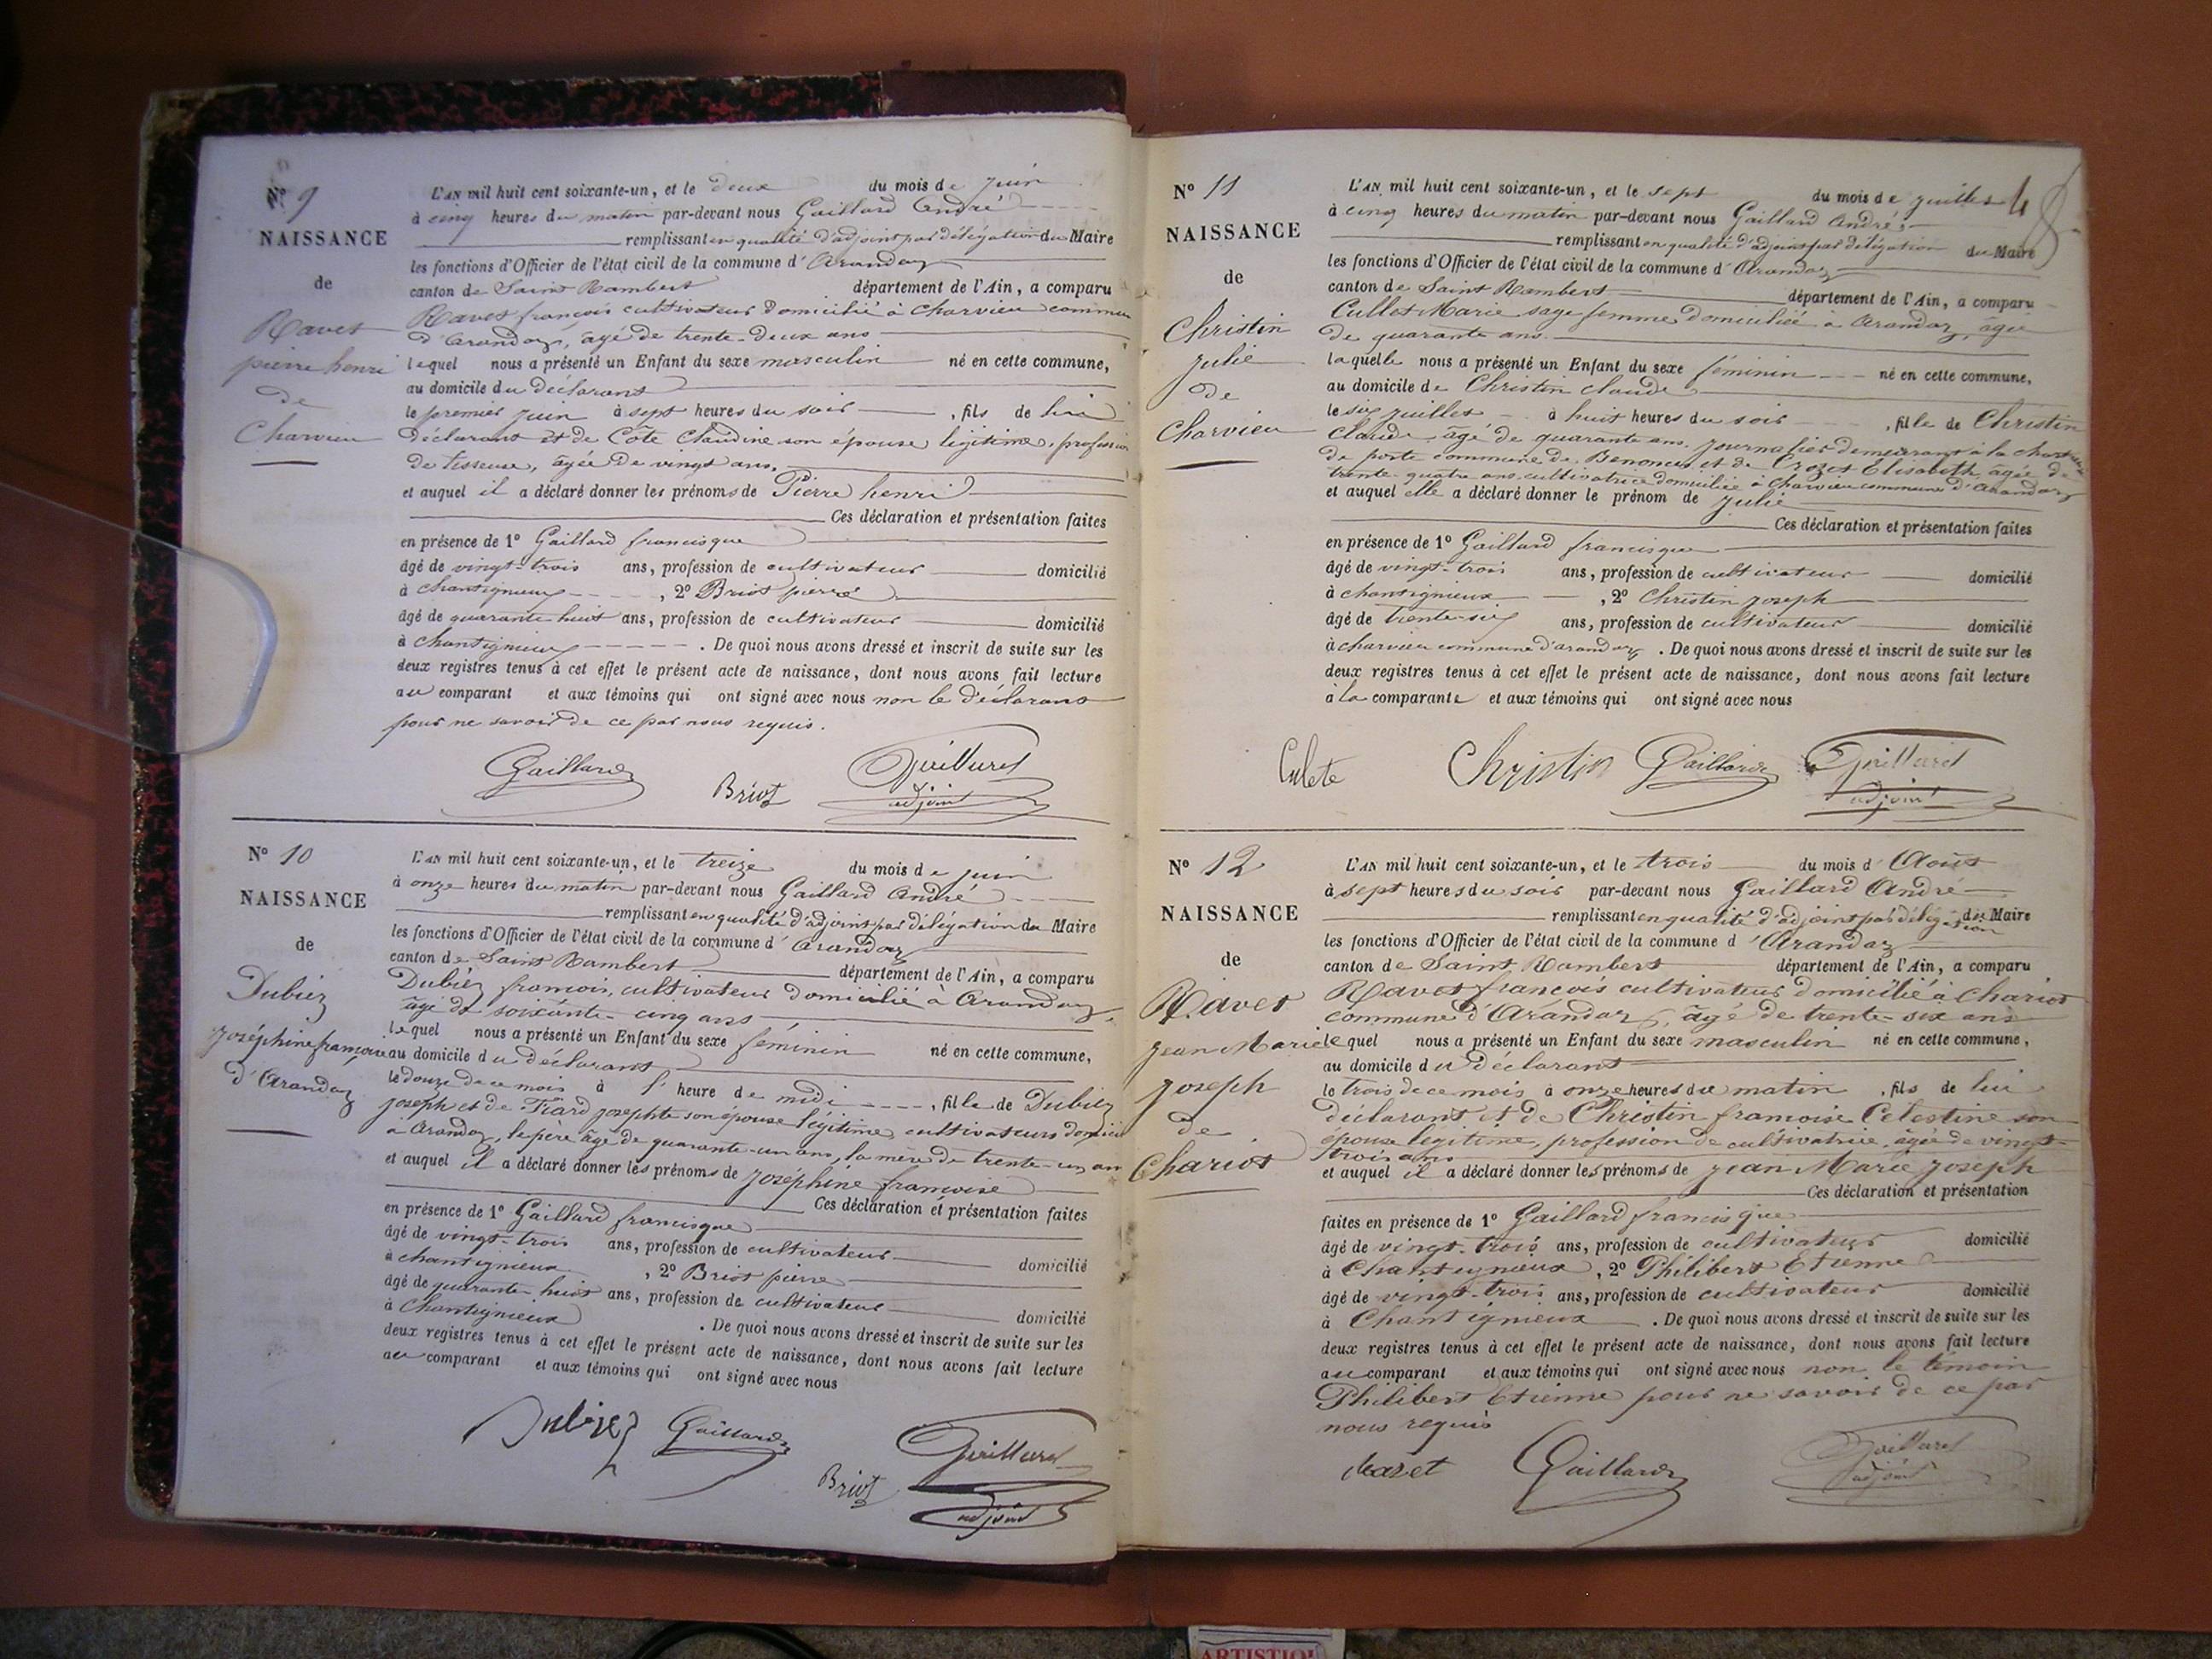 N° 9
NAISSANCE
de
Ravet
pierre henri
de
Charvieu
L'AN mil huit cent soixante-un, et le deux du mois de juin
à cinq heures du matin par-devant nous Gaillard André
remplissant en qualité d'adjoint par délégation du Maire
les fonctions d'Officier de l'état civil de la commune d'Arandaz
canton de Saint Rambert département de l'Ain, a comparu
Ravet françois cultivateur domicilié à Charvieu commune
d'Arandaz, âgé de trente-deux ans
lequel nous a présenté un Enfant du sexe masculin né en cette commune,
au domicile du déclarant
le premier juin à sept heures du soir, fils de lui
déclarant et de Côte Claudine son épouse légitime, profession
de tisseuse, âgée de vingt ans,
et auquel il a déclaré donner les prénoms de Pierre henri
Ces déclaration et présentation faites
en présence de 1° Gaillard francisque
âgé de vingt-trois ans, profession de cultivateur domicilié
à Chantignieux, 2° Briot pierre
âgé de quarante huit ans, profession de cultivateur domicilié
à Chantignieux. De quoi nous avons dressé et inscrit de suite sur les
deux registres tenus à cet effet le présent acte de naissance, dont nous avons fait lecture
au comparant et aux témoins qui ont signé avec nous non le déclarant
pour ne savoir de ce par nous requis.
Gaillard Briot Gaillard
adjoint
N° 10
NAISSANCE
de
Dubiez
Joséphine françoise
d'Arandaz
L'AN mil huit cent soixante-un, et le treize du mois de juin
à onze heures du matin par-devant nous Gaillard André
remplissant en qualité d'adjoint par délégation du Maire
les fonctions d'Officier de l'état civil de la commune d'Arandaz
canton de Saint Rambert département de l'Ain, a comparu
Dubiez francois, cultivateur domicilié à Arandaz,
âgé de soixante-cinq ans
lequel nous a présenté un Enfant du sexe féminin né en cette commune,
au domicile du déclarant
le douze de ce mois à l'heure de midi, fille de Dubiez
joseph et de josephte son épouse légitime cultivateurs
à Arandaz, le père âgé de quarante-un ans, la mère de trente-un ans
et auquel il a déclaré donner les prénoms de Joséphine francoise
Ces déclaration et présentation faites
en présence de 1° Gaillard francisque
âgé de vingt-trois ans, profession de cultivateur domicilié
à chantignieux, 2° Briot pierre
âgé de quarante-huit ans, profession de cultivateur domicilié
à Chantignieux. De quoi nous avons dressé et inscrit de suite sur les
deux registres tenus à cet effet le présent acte de naissance, dont nous avons fait lecture
au comparant et aux témoins qui ont signé avec nous
Dubiez Gaillard Briot Gaillard
adjoint
48
N° 11
NAISSANCE
de
Christin
Julie
de
Charvieu
L'AN mil huit cent soixante-un, et le sept du mois de juillet
à cinq heures du matin par-devant nous Gaillard André
remplissant en qualité d'adjoint par délégation du Maire
les fonctions d'Officier de l'état civil de la commune d'Arandaz
canton de Saint Rambert département de l'Ain, a comparu
Cullet Marie sage femme domiciliée à Arandaz, âgée
de quarante ans.
laquelle nous a présenté un Enfant du sexe féminin né en cette commune,
au domicile de Christin claude
le six juillet à huit heures du soir, fille de Christin
claude, âgé de quarante ans, journalier demeurant à la chartreuse
de porte commune de Benonces et de Crozet Elisabeth, âgée de
trente-quatre ans, cultivatrice domiciliée à Charvieu commune d'Arandaz
et auquel elle a déclaré donner le prénom de Julie
Ces déclaration et présentation faites
en présence de 1° Gaillard francisque
âgé de vingt-trois ans, profession de cultivateur domicilié
à chantignieux, 2° Christin joseph
âgé de trente-six ans, profession de cultivateur domicilié
à charvieu commune d'arandaz. De quoi nous avons dressé et inscrit de suite sur les
deux registres tenus à cet effet le présent acte de naissance, dont nous avons fait lecture
à la comparante et aux témoins qui ont signé avec nous
Culete Christin Gaillard Gaillard
adjoint
N° 12
NAISSANCE
de
Ravet
Jean Marie
Joseph
de
Chariot
L'AN mil huit cent soixante-un, et le trois du mois d'Août
à sept heures du soir par-devant nous Gaillard André
remplissant en qualité d'adjoint par délégation du Maire
les fonctions d'Officier de l'état civil de la commune d'Arandaz
canton de Saint Rambert département de l'Ain, a comparu
Ravet françois cultivateur domicilié à Chariot
commune d'Arandaz, âgé de trente-six ans
lequel nous a présenté un Enfant du sexe masculin né en cette commune,
au domicile du déclarant
le trois de ce mois à onze heures du matin, fils de lui
déclarant et de Christin francoise Celestine son
épouse légitime, profession de cultivatrice, âgée de vingt-
trois ans
et auquel il a déclaré donner les prénoms de Jean Marie Joseph
Ces déclaration et présentation
faites en présence de 1° Gaillard francisque
âgé de vingt-trois ans, profession de cultivateur domicilié
à Chantignieux, 2° Philibert Etienne
âgé de vingt-trois ans, profession de cultivateur domicilié
à Chantignieux. De quoi nous avons dressé et inscrit de suite sur les
deux registres tenus à cet effet le présent acte de naissance, dont nous avons fait lecture
au comparant et aux témoins qui ont signé avec nous non le témoin
Philibert Etienne pour ne savoir de ce par
nous requis
Gaillard Gaillard
adjoint